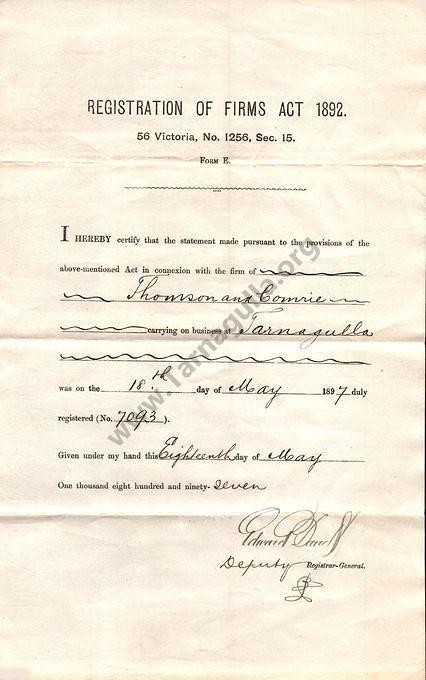 REGISTRATION OF FIRMS ACT 1892.
56 Victoria, No. 1256, Sec. 15.
FORM E.
I HEREBY certify that the statement made pursuant to the provisions of the
above-mentioned Act in connexion with the firm of
Thomson and Comrie
carrying on business at Tarnagulla
was on the 18th day of May 1897 duly
registered (No. 7093).
Given under my hand this Eighteenth day of May
One thousand eight hundred and ninety-seven
Edward
Deputy Registrar-General.
www.Tarnagulla.org